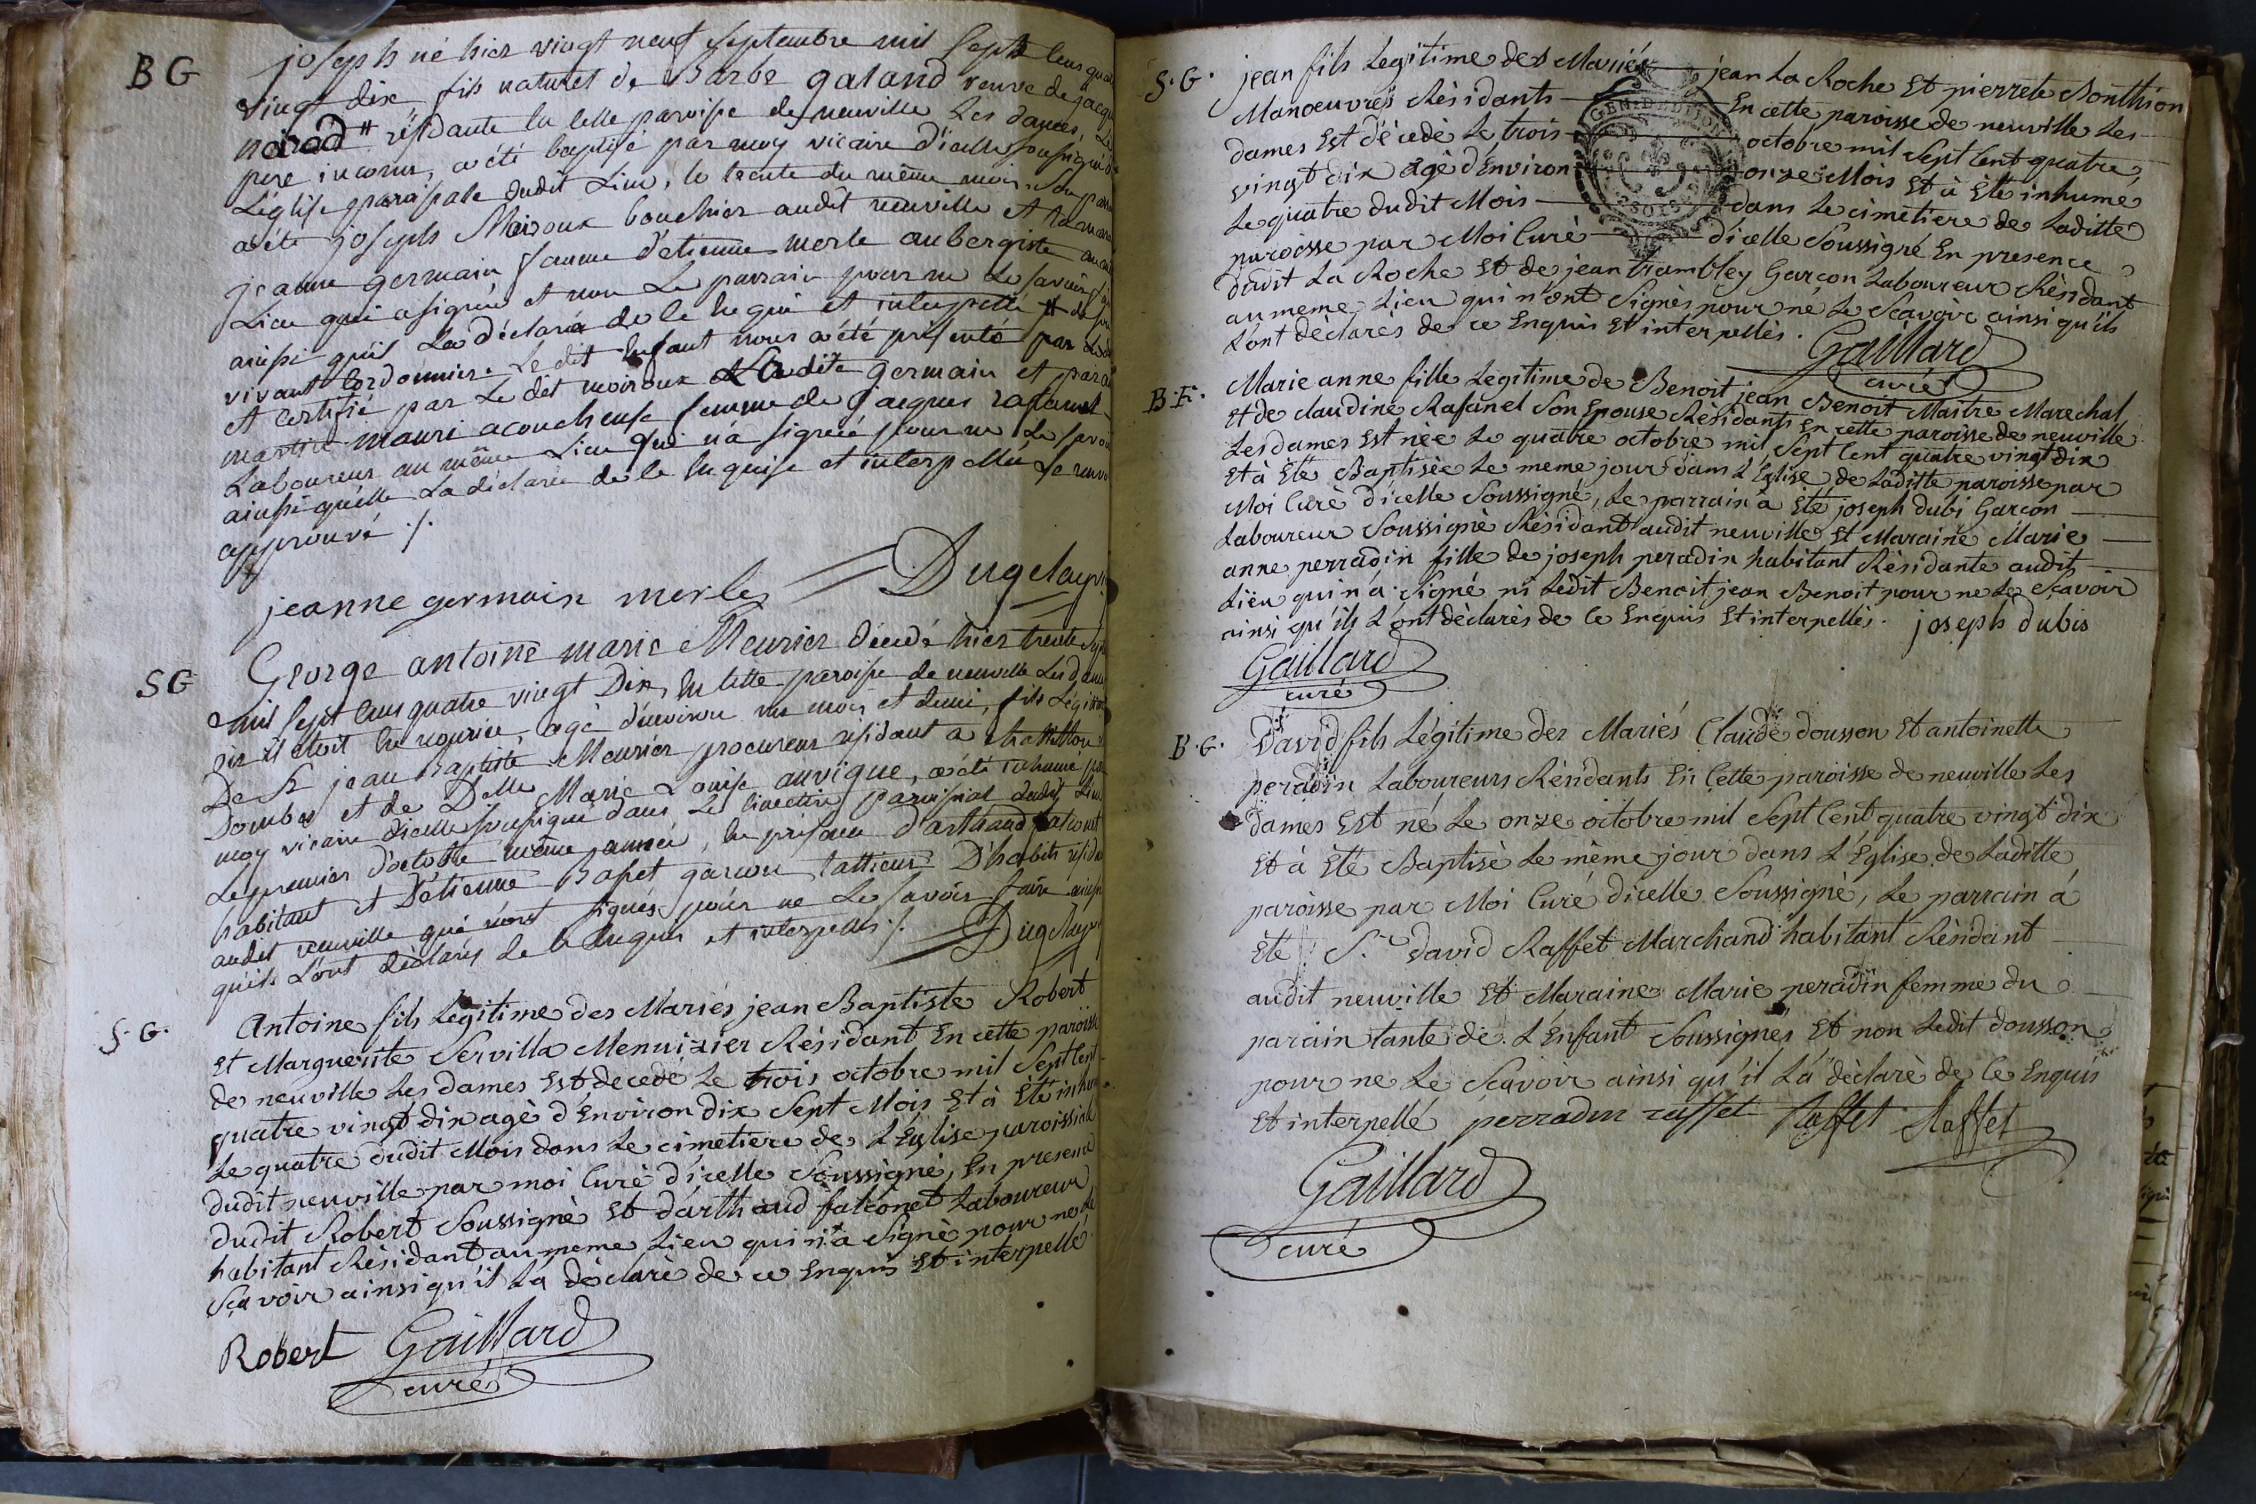 BG
joseph né hier vingt neuf septembre mil sept cens quatre
vingt dix fils naturel de Barbe galand veuve de jacque
résidante en cette paroisse de neuville Les dames, Le
pere inconnu, a été baptisé par moy vicaire d'icelle soussigné dans
L'église paroissiale dudit Lieu, le trente du même mois. Son parrain
a été joseph Moiroux bouchier audit neuville et la maraine
jeanne germain famme d'etienne merle aubergiste au même
Lieu qui a signée et non Le parrain pour ne le savoir
ainssi qu'il La déclaré de ce enquis et interpellé #
vivant Cordonnier. Le dit enfant nous a été présenté par
et certifié par Le dit moiroux et La dite germain et par
mauri acoucheuse femme de jacques rafanel
Laboureur au même Lieu qui n'a signée pour ne Le savoir
ainssi qu'elle La déclarée de ce enquise et interpellée
approuvé ./.
jeanne germain merle Dugelay
SG
George antoine marie Meurier décédé hier trente
mil sept cens quatre vingt Dix, en cette paroisse de neuville Les dames
où il étoit en nourice, agé d'environ un mois et demi, fils Légitime
De Sr jean Baptiste Meurier procureur résidant a chatillon
Dombes et de Delle Marie Louise auvigue, a été inhumé par
moy vicaire d'icelle soussigné dans Le cimettiere paroissial dudit Lieu
Le premier d'octobre même année, en présence d'arthaud falconet
habitant et D'étienne Bafet garcon tallieur D'habits résidant
audit neuville qui n'ont signés pour ne Le savoir faire ainssi
qu'ils L'ont déclarés de ce enquis et interpellés ./. Dugelay
S.G.
Antoine fils Légitime des Mariés jean Baptiste Robert
et Marguerite Servilla Menuizier Résidant En cette paroisse
de neuville Les dames Est decedé Le trois octobre mil Sept Cent
quatre vingt dix agé d'Environ dix Sept Mois Et à Eté inhumé
Le quatre dudit Mois dans Le cimetiere de L'Eglise paroissiale
dudit neuville par moi Curé d'icelle Soussigné, En presence
dudit Robert Soussigné Et d'arthaud falconet Laboureur
habitant Résidant au meme Lieu qui n'a Signé pour ne Le
Scavoir ainsi qu'il L'a déclaré de ce Enquis Et interpellé
Robert Gaillard
curé
S.G.
jean fils Legitime des Mariés jean La Roche Et pierrete Monthion
Manoeuvres Résidants En cette paroisse de neuville Les
dames Est décédé Le trois octobre mil Sept Cent quatre
vingt dix agé d'Environ onze Mois Et à Eté inhumé
Le quatre dudit Mois dans Le cimetiere de Laditte
paroisse par Moi Curé d'icelle Soussigné En presence
dudit La Roche Et de jean trambley Garçon Laboureur Résidant
au meme Lieu qui n'ont Signés pour ne Le Scavoir ainsi qu'ils
L'ont déclarés de ce Enquis Et interpellés. Gaillard
curé
B.F.
Marie anne fille Legitime de Benoit jean Benoit Maitre Marechal
Et de claudine Rafanel Son Epouse Résidants En cette paroisse de neuville
Les dames Est née Le quatre octobre mil Sept Cent quatre vingt dix
Et à Eté Baptisée Le meme jour dans L'Eglise de Laditte paroisse par
Moi Curé d'icelle Soussigné, Le parrain à Eté joseph dubi Garcon
Laboureur Soussigné Résidant audit neuville Et Maraine Marie
anne perradin fille de joseph peradin habitant Résidante audit
Lieu qui n'a Signé ni Ledit Benoit jean Benoit pour ne Le Scavoir
ainsi qu'ils L'ont déclarés de Ce Enquis Et interpellés. joseph dubis
Gaillard
curé
B.G.
David fils Légitime des Mariés Claude dousson Et antoinette
peradin Laboureurs Résidants En Cette paroisse de neuville Les
dames Est né Le onze octobre mil Sept Cent quatre vingt dix
Et à Eté Baptisé Le mème jour dans L'Eglise de Laditte
paroisse par Moi Curé d'icelle Soussigné, Le parrain à
Eté Sr david Raffet Marchand habitant Résidant
audit neuville Et Maraine Marie peradin femme du
parain tante de L'Enfant Soussignés Et non Ledit dousson
pour ne Le Scavoir ainsi qu'il L'a déclaré de Ce Enquis
Et interpellé perradin raffet Raffet Raffet
Gaillard
curé